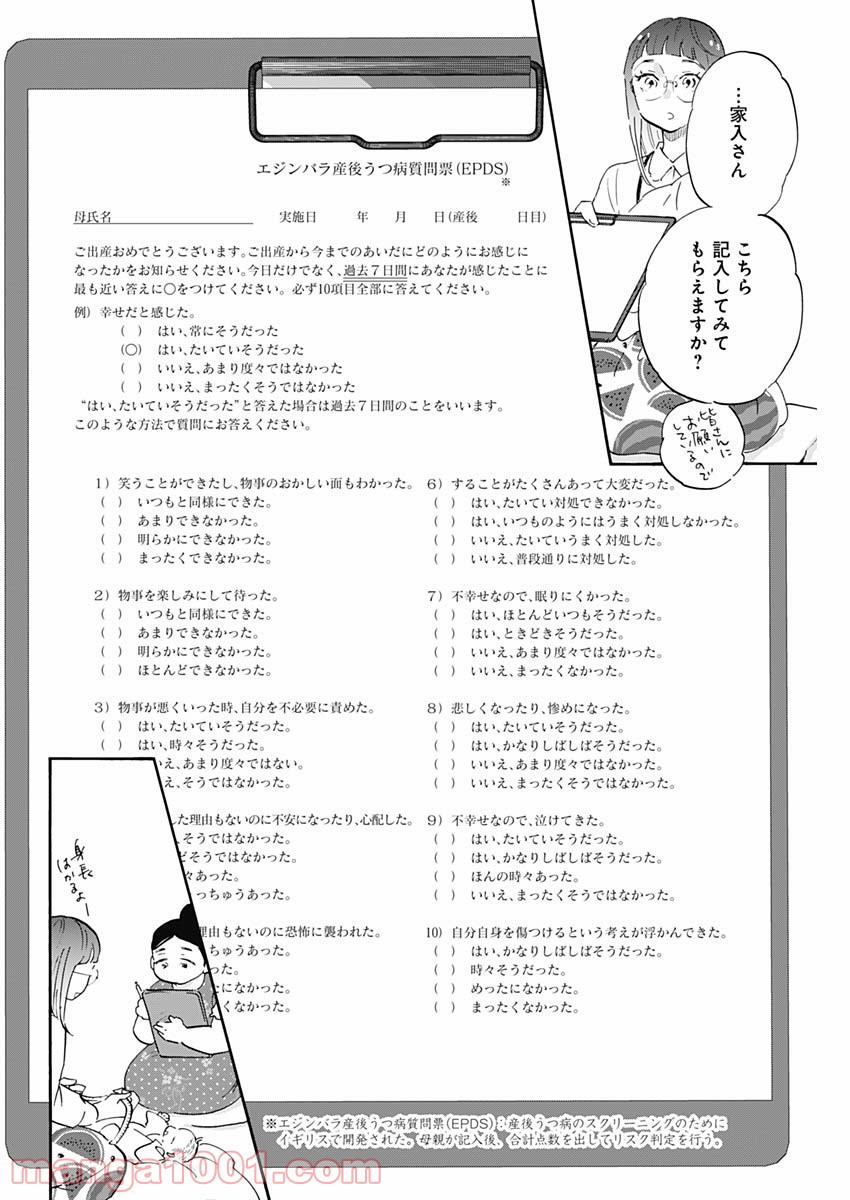 …家入さん
こちら
記入してみて
もらえますか?
皆さんに
お願い
しているので
エジンバラ産後うつ病質問票(EPDS)
※
母氏名 実施日 年 月 日(産後 日目)
ご出産おめでとうございます。ご出産から今までのあいだにどのようにお感じに
なったかをお知らせください。今日だけでなく、過去7日間にあなたが感じたことに
最も近い答えに〇をつけてください。必ず10項目全部に答えてください。
例) 幸せだと感じた。
( ) はい、常にそうだった
(〇) はい、たいていそうだった
( ) いいえ、あまり度々ではなかった
( ) いいえ、まったくそうではなかった
“はい、たいていそうだった”と答えた場合は過去7日間のことをいいます。
このような方法で質問にお答えください。
1) 笑うことができたし、物事のおかしい面もわかった。
( ) いつもと同様にできた。
( ) あまりできなかった。
( ) 明らかにできなかった。
( ) まったくできなかった。
2) 物事を楽しみにして待った。
( ) いつもと同様にできた。
( ) あまりできなかった。
( ) 明らかにできなかった。
( ) ほとんどできなかった。
3) 物事が悪くいった時、自分を不必要に責めた。
( ) はい、たいていそうだった。
( ) はい、時々そうだった。
いえ、あまり度々ではない。
え、そうではなかった。
した理由もないのに不安になったり、心配した。
そうではなかった。
どそうではなかった。
々あった。
っちゅうあった。
理由もないのに恐怖に襲われた。
ちゅうあった。
った。
たになかった。
くなかった。
6) することがたくさんあって大変だった。
( ) はい、たいてい対処できなかった。
( ) はい、いつものようにはうまく対処しなかった。
( ) いいえ、たいていうまく対処した。
( ) いいえ、普段通りに対処した。
7) 不幸せなので、眠りにくかった。
( ) はい、ほとんどいつもそうだった。
( ) はい、ときどきそうだった。
( ) いいえ、あまり度々ではなかった。
( ) いいえ、まったくなかった。
8) 悲しくなったり、惨めになった。
( ) はい、たいていそうだった。
( ) はい、かなりしばしばそうだった。
( ) いいえ、あまり度々ではなかった。
( ) いいえ、まったくそうではなかった。
9) 不幸せなので、泣けてきた。
( ) はい、たいていそうだった。
( ) はい、かなりしばしばそうだった。
( ) ほんの時々あった。
( ) いいえ、まったくそうではなかった。
10) 自分自身を傷つけるという考えが浮かんできた。
( ) はい、かなりしばしばそうだった。
( ) 時々そうだった。
( ) めったになかった。
( ) まったくなかった。
身長
はかるよー
※エジンバラ産後うつ病質問票(EPDS):産後うつ病のスクリーニングのために
イギリスで開発された。母親が記入後、合計点数を出してリスク判定を行う。
manga1001.com